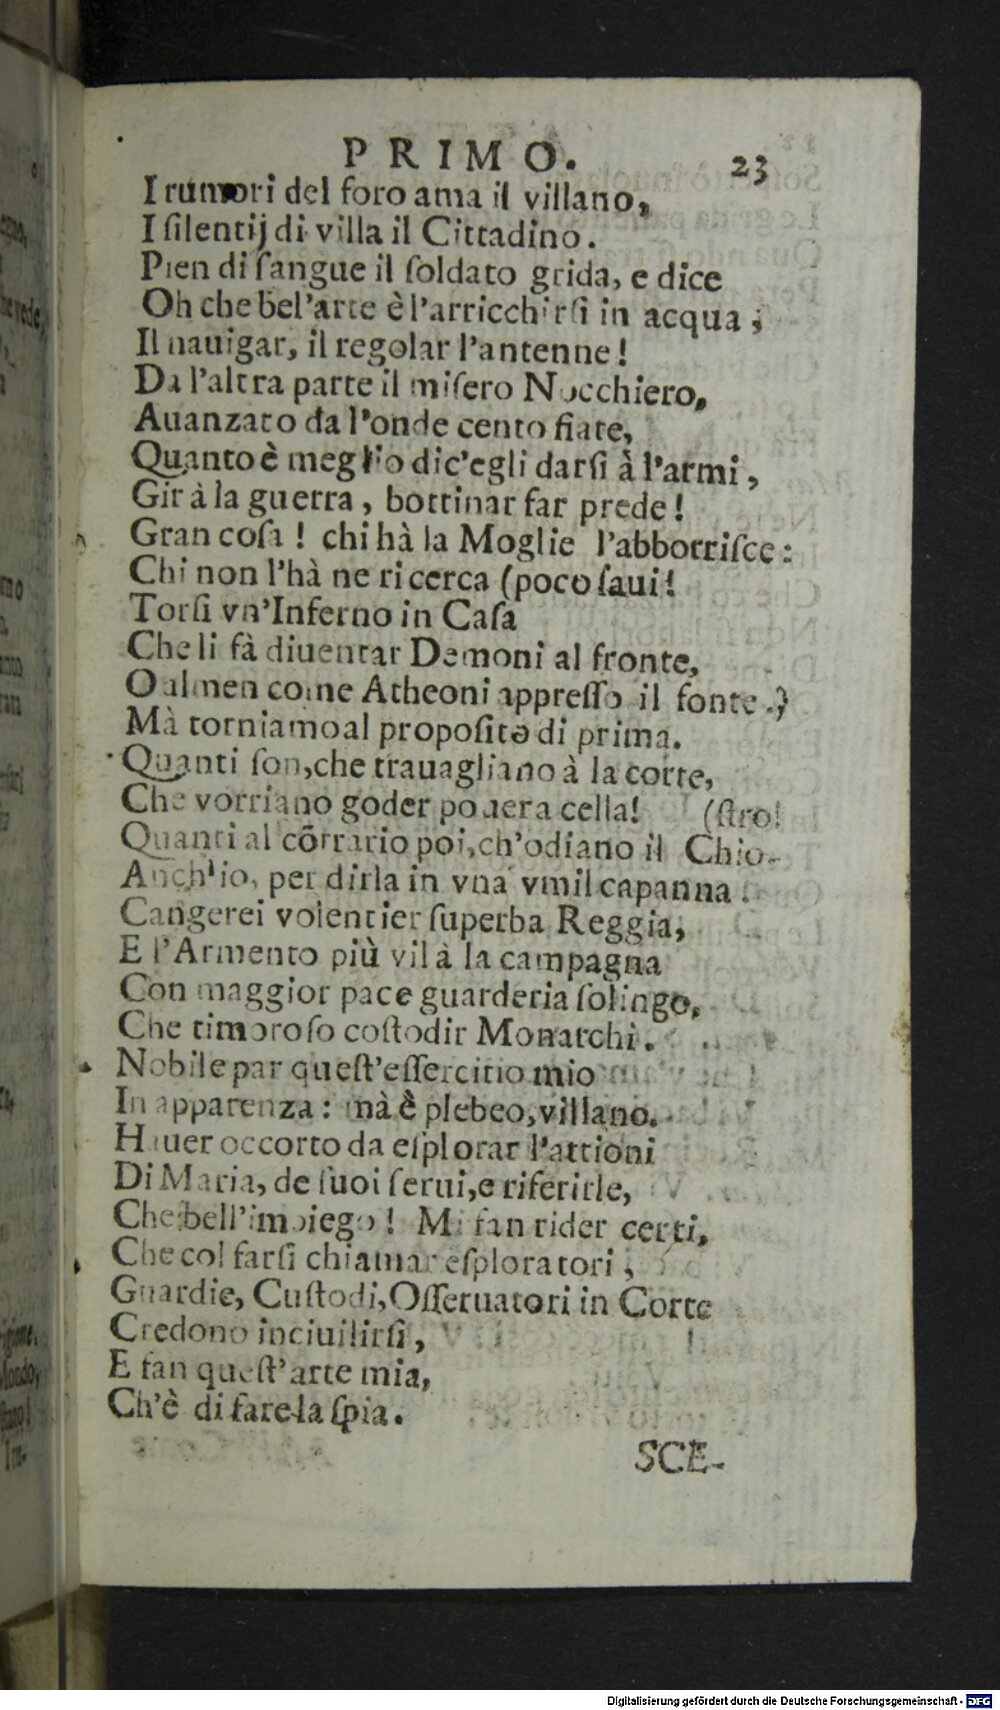 PRIMO. 23
I rumori del foro ama il villano,
I ſilentij di villa il Cittadino.
Pien di ſangue il ſoldato grida, e dice
Oh che bel'arte è l'arricchirſi in acqua;
Il nauigar, il regolar l'antenne!
Da l'altra parte il miſero Nocchiero,
Auanzato da l'onde cento fiate,
Quanto è meglio dic'egli darſi à l'armi,
Gir à la guerra, bottinar far prede!
Gran coſa! chi hà la Moglie l'abborriſce:
Chi non l'hà ne ricerca (poco ſaui!
Torſi vn'Inferno in Caſa
Che li fà diuentar Demoni al fronte,
O almen come Atheoni appreſſo il fonte.)
Mà torniamo al propoſito di prima.
Quanti ſon, che trauagliano à la corte,
Che vorriano goder pouera cella! (ſtro!
Quanti al cõrrario poi, ch'odiano il Chio-
Anch'io, per dirla in vna vmil capanna
Cangerei volentier ſuperba Reggia,
E l'Armento più vil à la campagna
Con maggior pace guarderia ſolingo,
Che timoroſo coſtodir Monarchi.
Nobile par queſt'eſſercitio mio
In apparenza: mà è plebeo, villano.
Hauer occorto da eſplorar l'attioni
Di Maria, de ſuoi ſerui, e riferirle,
Che bell'impiego! Mi fan rider certi,
Che col farſi chiamar eſploratori,
Guardie, Cuſtodi, Oſſeruatori in Corte
Credono inciuilirſi,
E fan queſt'arte mia,
Ch'è di fare la ſpia.
SCE-
Digitalisierung gefördert durch die Deutsche Forschungsgemeinschaft - DFG